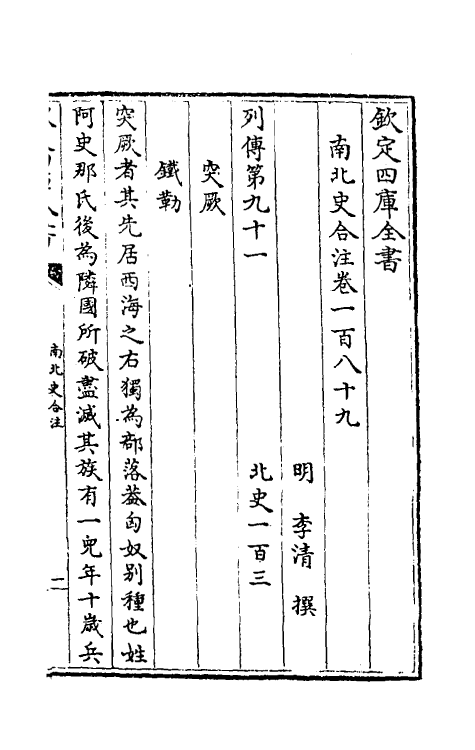 欽定四庫全書
南北史合注卷一百八十九
明 李清 撰
列傳第九十一 北史一百三
突厥
鐵勒
突厥者其先居西海之右獨為部落葢匈奴别種也姓
阿史那氏後為隣國所破盡滅其族有一兒年十歲兵
南北史合注
一